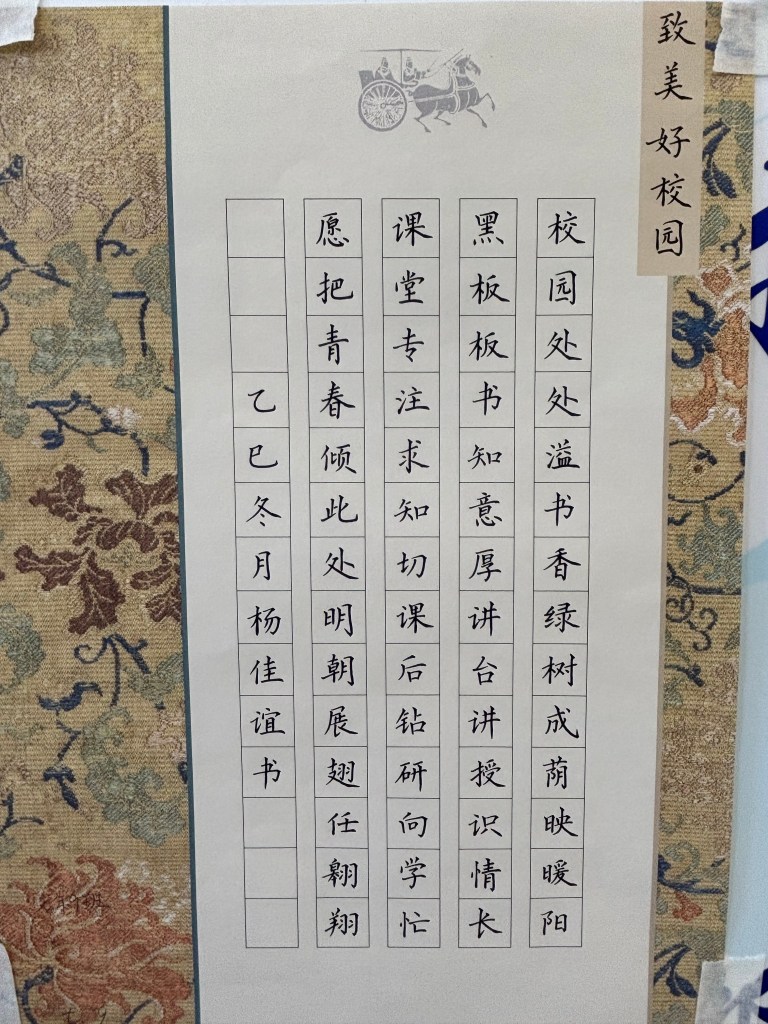 致美好校园
校园处处溢书香绿树成荫映暖阳
黑板板书知意厚讲台讲授识情长
课堂专注求知切课后钻研向学忙
愿把青春倾此处明朝展翅任翱翔
乙巳冬月杨佳谊书